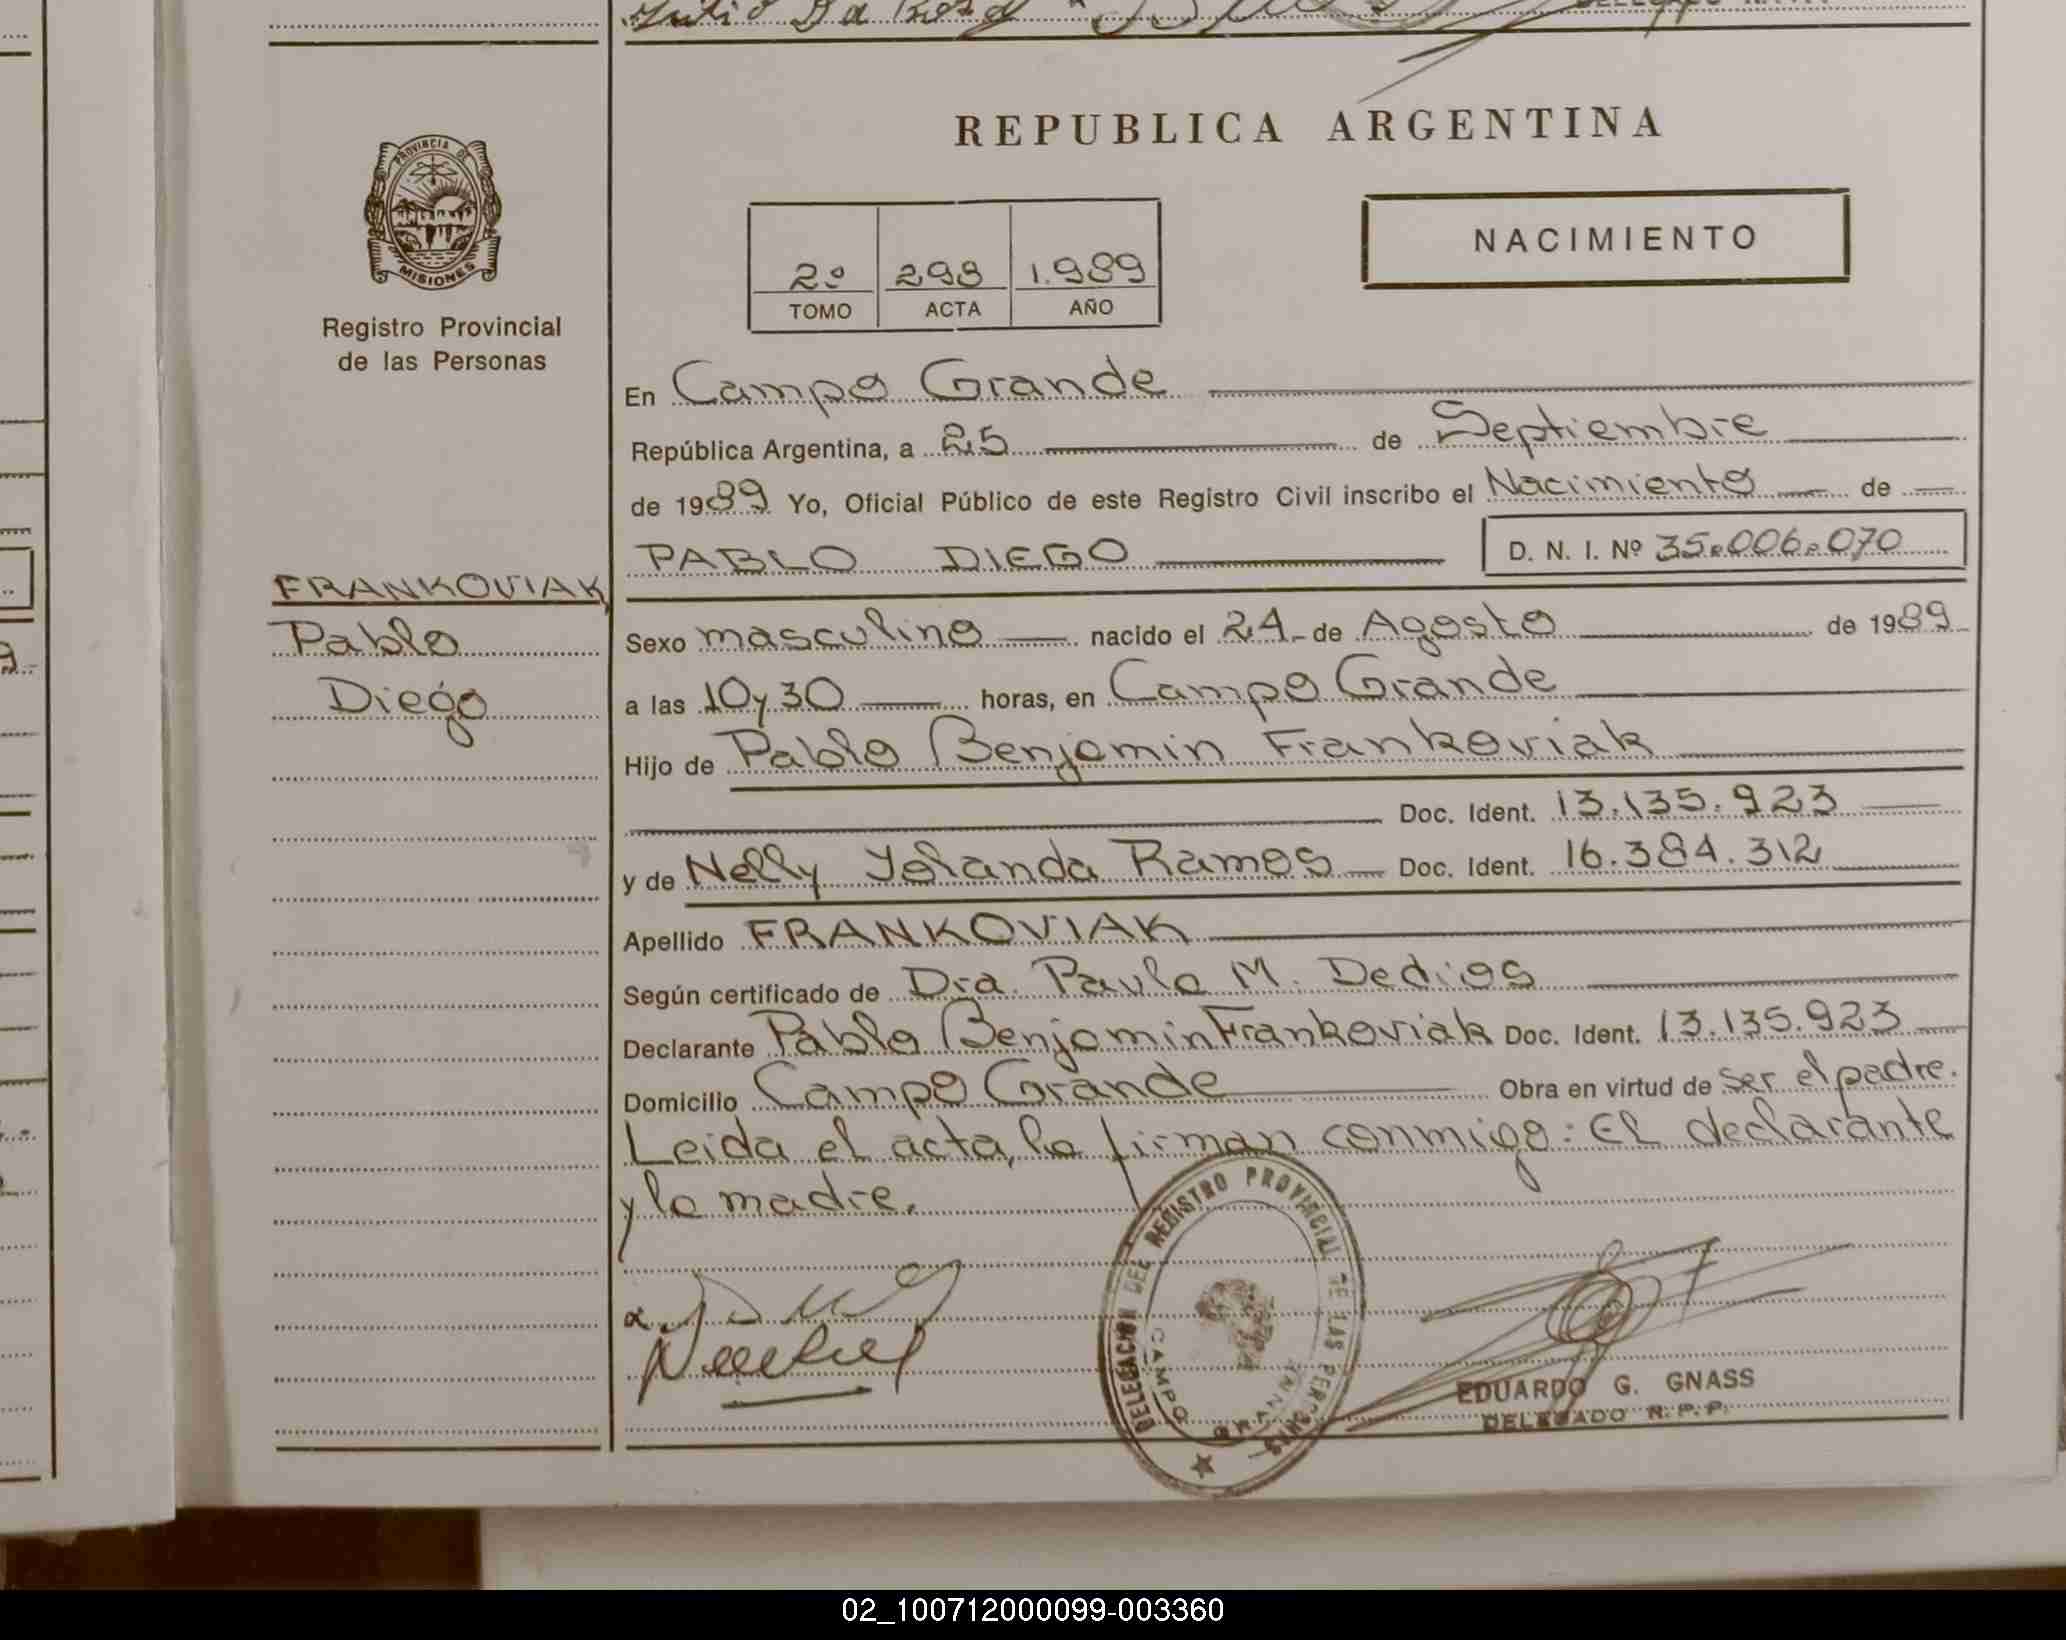 REPUBLICA ARGENTINA
PROVINCIA DE
MISIONES
Registro Provincial
de las Personas
NACIMIENTO
2º 298 1.989
TOMO ACTA AÑO
En Campo Grande
República Argentina, a 25 de Septiembre
de 1989 Yo, Oficial Público de este Registro Civil inscribo el Nacimiento de
PABLO DIEGO D. N. I. Nº 35.006.070
FRANKOVIAK,
Pablo
Diego
Sexo masculino nacido el 24 de Agosto de 1989
a las 10 y 30 horas, en Campo Grande
Hijo de Pablo Benjamin Frankoviak
Doc. Ident. 13.135.923
y de Nelly Yolanda Ramos Doc. Ident. 16.384.312
Apellido FRANKOVIAK
Según certificado de Dra. Paula M. Dedios
Declarante Pablo Benjamin Frankoviak Doc. Ident. 13.135.923
Domicilio Campo Grande Obra en virtud de ser el padre.
Leida el acta, la firman conmigo: El declarante
y la madre.
DELEGACION DEL REGISTRO PROVINCIAL DE LAS PERSONAS
CAMPO GRANDE
EDUARDO G. GNASS
DELEGADO R.P.P.
02_100712000099-003360